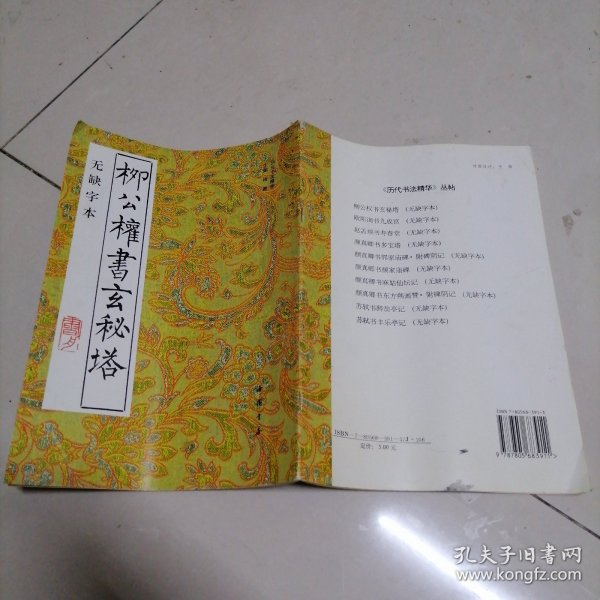 无缺字本
柳公權書玄秘塔
中国书店
《历代书法精华》丛帖
柳公权书玄秘塔 (无缺字本)
欧阳询书九成宫 (无缺字本)
赵孟頫书寿春堂 (无缺字本)
颜真卿书多宝塔 (无缺字本)
颜真卿书郭家庙碑·附碑阴记 (无缺字本)
颜真卿书颜家庙碑 (无缺字本)
颜真卿书麻姑仙坛记 (无缺字本)
颜真卿书东方朔画赞·附碑阴记 (无缺字本)
苏轼书醉翁亭记 (无缺字本)
苏轼书丰乐亭记 (无缺字本)
ISBN 7-80568-391-5
9 787805 683911
定价: 5.00 元
孔夫子旧书网
www.kongfz.com